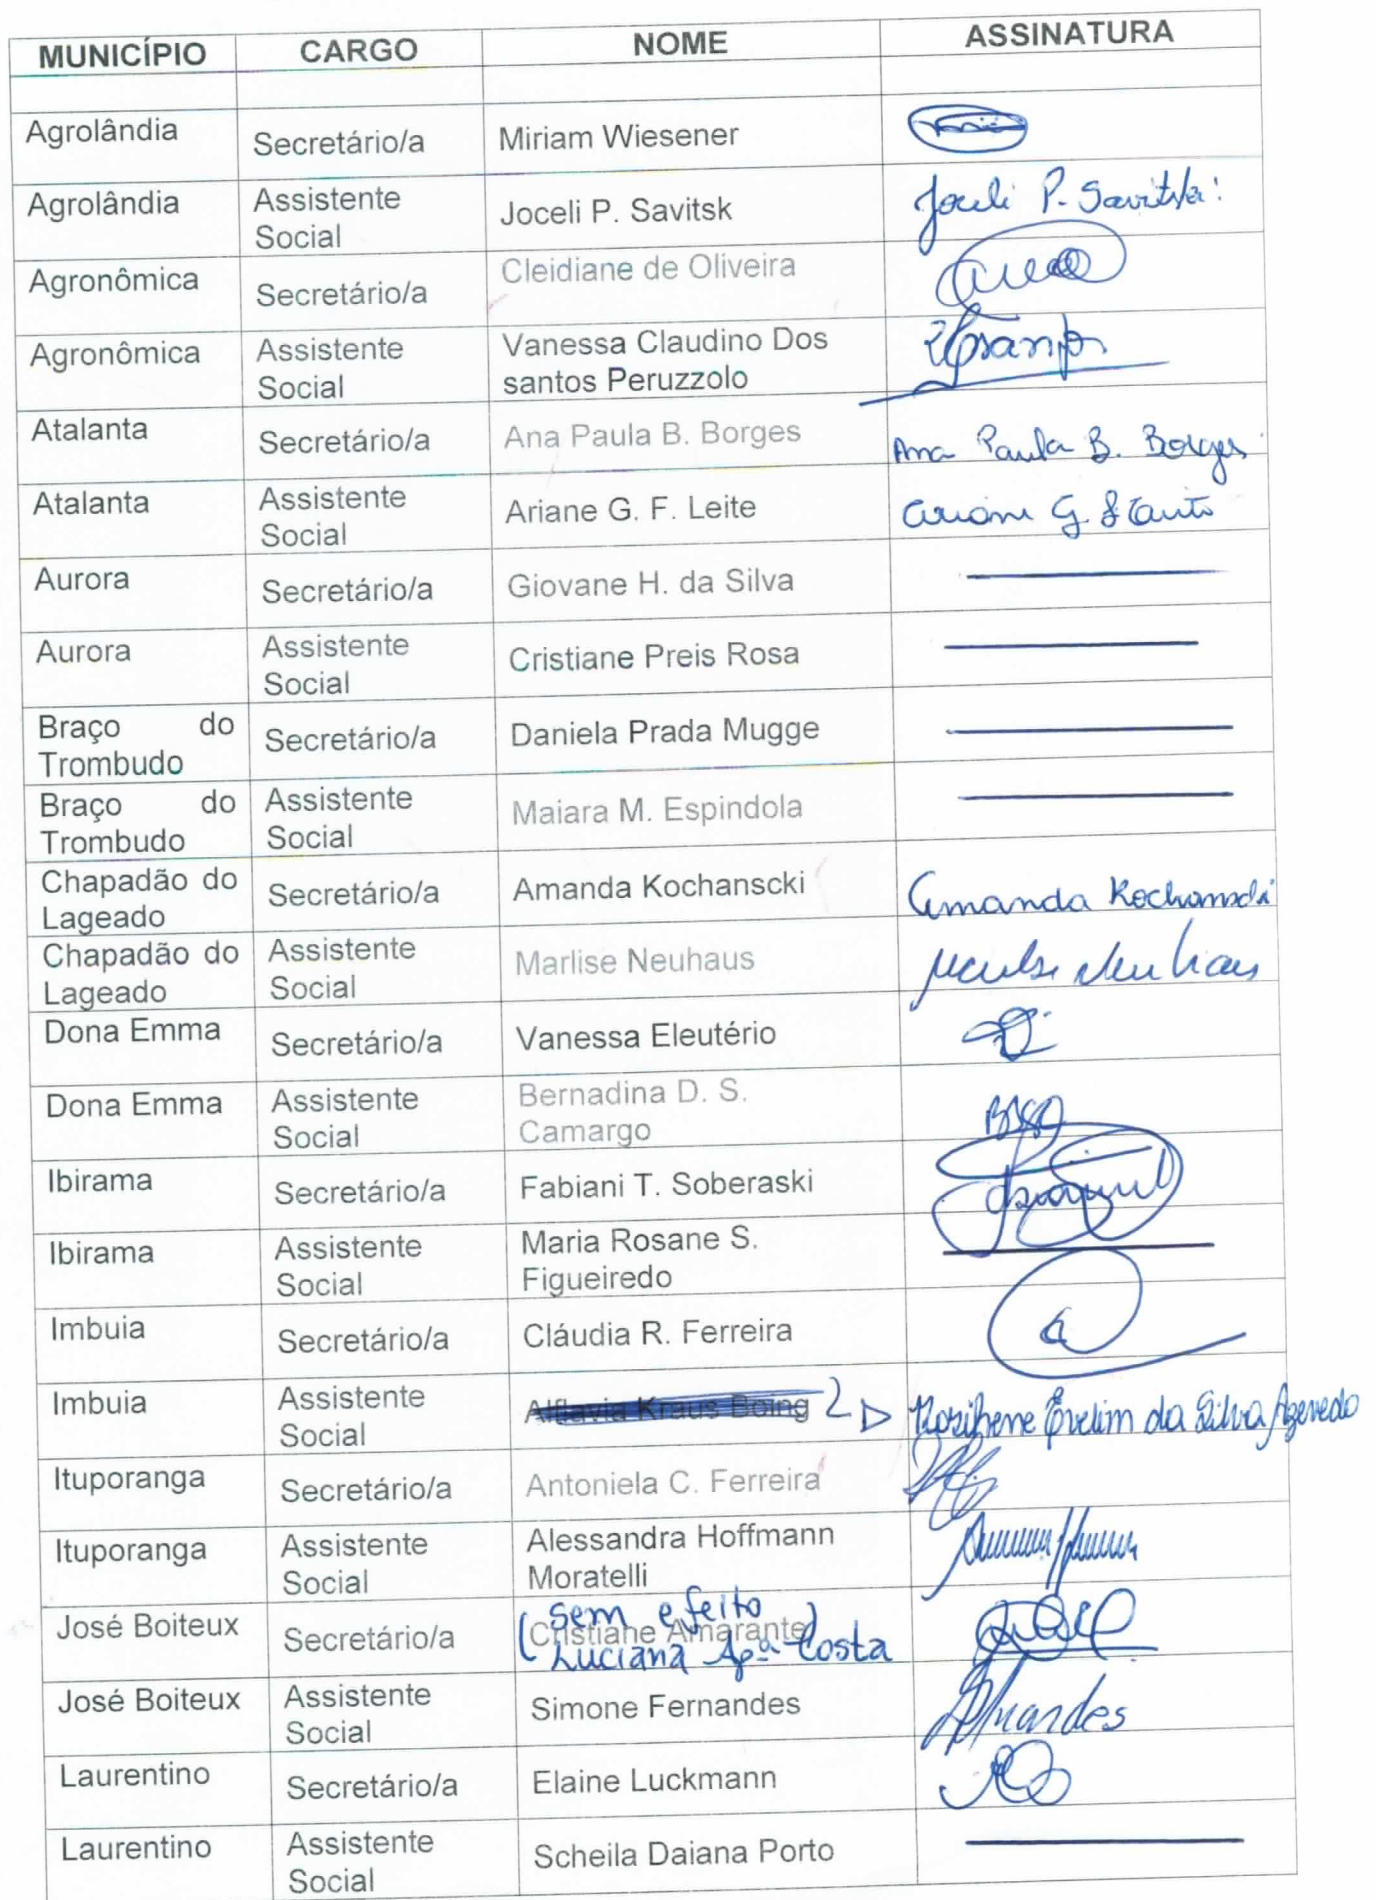 MUNICÍPIO CARGO NOME ASSINATURA
Agrolândia Secretário/a Miriam Wiesener
Agrolândia Assistente Social Joceli P. Savitsk Joceli P. Savitski
Agronômica Secretário/a Cleidiane de Oliveira
Agronômica Assistente Social Vanessa Claudino Dos santos Peruzzolo
Atalanta Secretário/a Ana Paula B. Borges Ana Paula B. Borges
Atalanta Assistente Social Ariane G. F. Leite
Aurora Secretário/a Giovane H. da Silva
Aurora Assistente Social Cristiane Preis Rosa
Braço do Trombudo Secretário/a Daniela Prada Mugge
Braço do Trombudo Assistente Social Maiara M. Espindola
Chapadão do Lageado Secretário/a Amanda Kochanscki Amanda Kochanscki
Chapadão do Lageado Assistente Social Marlise Neuhaus Marlise Neuhaus
Dona Emma Secretário/a Vanessa Eleutério
Dona Emma Assistente Social Bernadina D. S. Camargo
Ibirama Secretário/a Fabiani T. Soberaski
Ibirama Assistente Social Maria Rosane S. Figueiredo
Imbuia Secretário/a Cláudia R. Ferreira
Imbuia Assistente Social Kraus Boing Evelim da Silva Azevedo
Ituporanga Secretário/a Antoniela C. Ferreira
Ituporanga Assistente Social Alessandra Hoffmann Moratelli
José Boiteux Secretário/a (Cristiane Amarante) sem efeito Luciana Apª Costa
José Boiteux Assistente Social Simone Fernandes
Laurentino Secretário/a Elaine Luckmann
Laurentino Assistente Social Scheila Daiana Porto